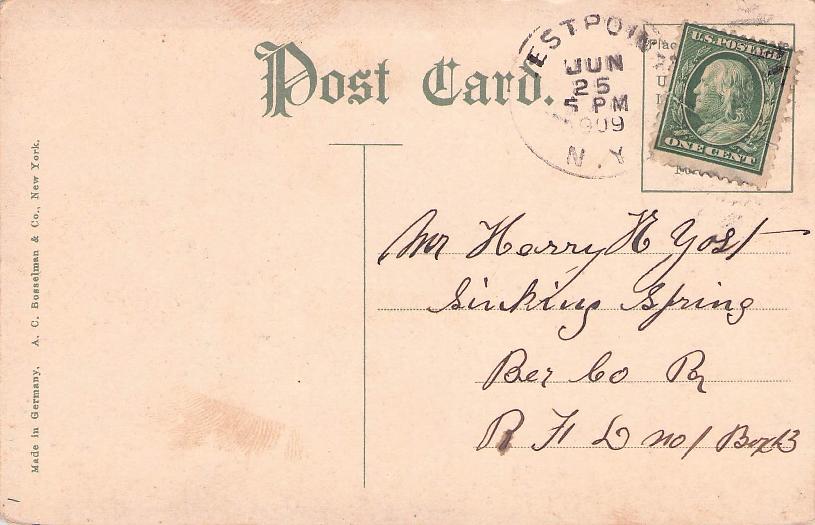 Post Card.
WESTPOINT
JUN
25
5 PM
1909
N.Y.
U.S. POSTAGE
ONE CENT
Mr Harry K Yost
Sinking Spring
Ber Co Pa
R F D no 1 Box
Made in Germany. A. C. Bosselman & Co., New York.